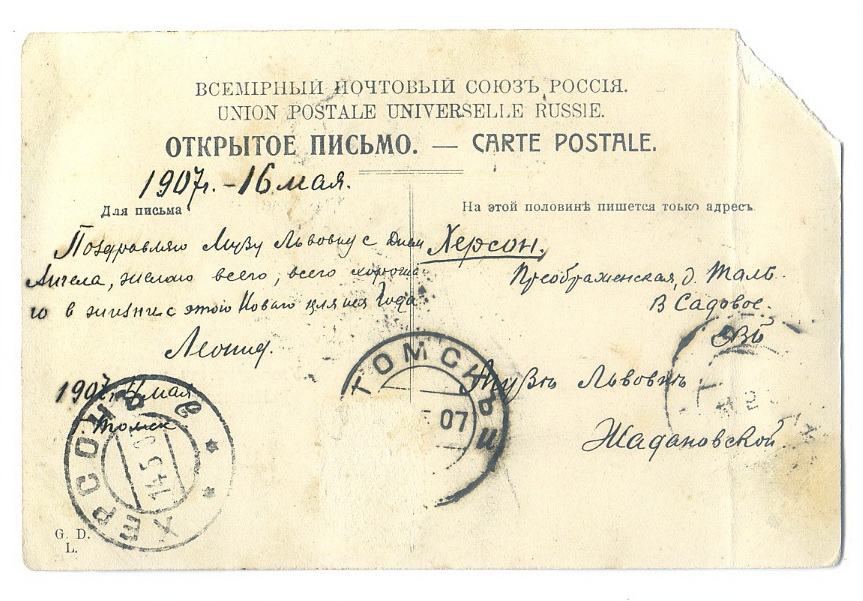 ВСЕМІРНЫЙ ПОЧТОВЫЙ СОЮЗЪ РОССІЯ.
UNION POSTALE UNIVERSELLE RUSSIE.
ОТКРЫТОЕ ПИСЬМО. — CARTE POSTALE.
1907г. - 16 мая.
Для письма
Поздравляю Музу Львовну с Днем
Ангела, желаю всего, всего хороша
го в жизни с этого Новаго для нея Года
Леонид.
1907г. 4 мая
г. Томск
На этой половинѣ пишется только адресъ
Херсон.
Преображенская, д. Таль
В Садовое.
ЕВБ
Музѣ Львовнѣ
Жадановской
ТОМСКЪ
07
ХЕРСОНЪ
14 5 07
G. D.
L.